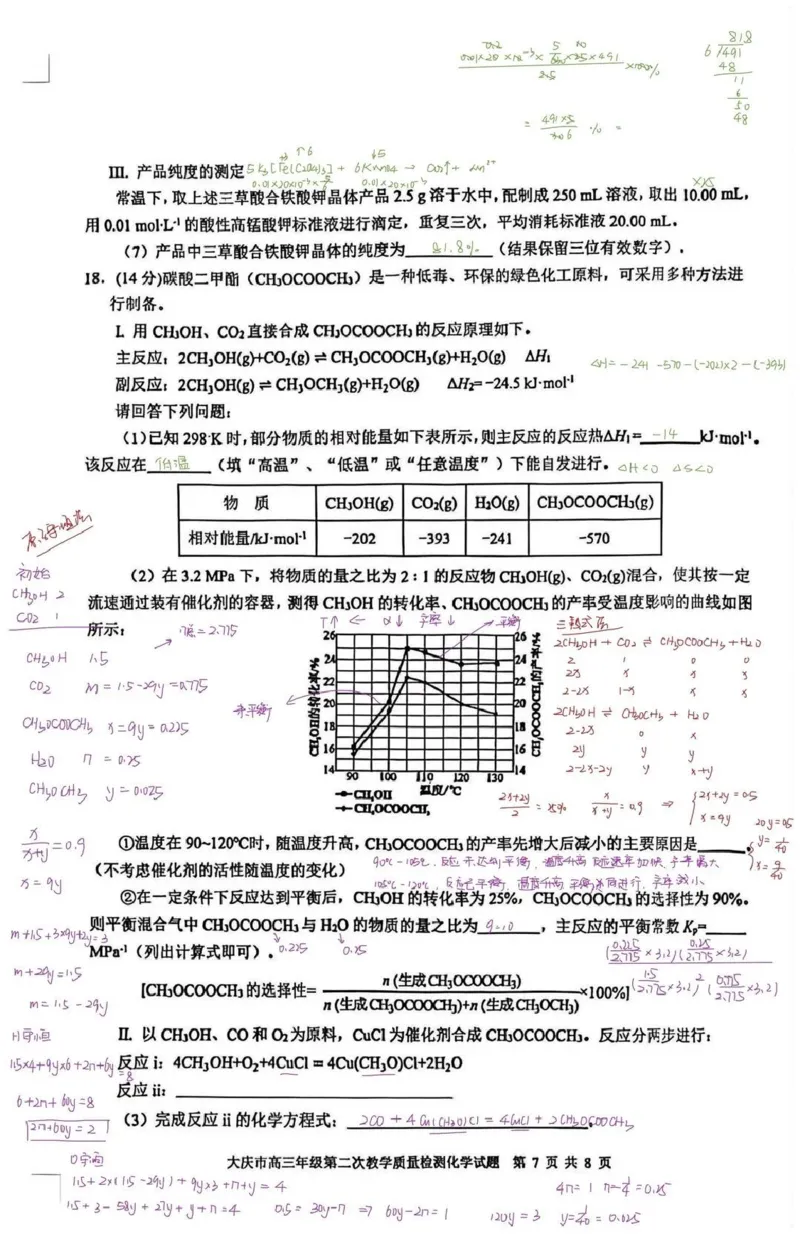 Ⅲ. 产品纯度的测定
常温下,取上述三草酸合铁酸钾晶体产品 2.5 g 溶于水中,配制成 250 mL 溶液,取出 10.00 mL,
用 0.01 mol·L⁻¹ 的酸性高锰酸钾标准液进行滴定,重复三次,平均消耗标准液 20.00 mL。
(7)产品中三草酸合铁酸钾晶体的纯度为 81.8% (结果保留三位有效数字).
18.(14 分)碳酸二甲酯(CH₃OCOOCH₃)是一种低毒、环保的绿色化工原料,可采用多种方法进
行制备。
I. 用 CH₃OH、CO₂直接合成 CH₃OCOOCH₃的反应原理如下。
主反应:2CH₃OH(g)+CO₂(g) ⇌ CH₃OCOOCH₃(g)+H₂O(g) ΔH₁
ΔH = -241 -570-(-202)×2-(-393)
副反应:2CH₃OH(g) ⇌ CH₃OCH₃(g)+H₂O(g) ΔH₂= -24.5 kJ·mol⁻¹
请回答下列问题:
(1)已知 298 K 时,部分物质的相对能量如下表所示,则主反应的反应热ΔH₁= -14 kJ·mol⁻¹。
该反应在 低温 (填“高温”、“低温”或“任意温度”)下能自发进行。 ΔH<0 ΔS<0
物 质 CH₃OH(g) CO₂(g) H₂O(g) CH₃OCOOCH₃(g)
相对能量/kJ·mol⁻¹ -202 -393 -241 -570
(2)在 3.2 MPa 下,将物质的量之比为 2:1 的反应物 CH₃OH(g)、CO₂(g)混合,使其按一定
流速通过装有催化剂的容器,测得 CH₃OH 的转化率、CH₃OCOOCH₃的产率受温度影响的曲线如图
所示:
初始
CH₃OH 2
CO₂ 1
CH₃OH 1.5
CO₂ m = 1.5-29y = 0.775
CH₃OCOOCH₃ x = 9y = 0.225
H₂O n = 0.25
CH₃OCH₃ y = 0.025
n总 = 2.775
T↑ ← α↓ 产率↓ → 平衡
未平衡
26 24 22 20 18 16 14
CH₃OH的转化率/%
26 24 22 20 18 16 14
CH₃OCOOCH₃的产率/%
90 100 110 120 130
温度/℃
CH₃OH
CH₃OCOOCH₃
三段式法
2CH₃OH + CO₂ ⇌ CH₃OCOOCH₃ + H₂O
2 1 0 0
2x x x x
2-2x 1-x x x
2CH₃OH ⇌ CH₃OCH₃ + H₂O
2-2x 0 x
2y y y
2-2x-2y y x+y
x/(x+y) = 0.9 ⇒ 2x+2y = 0.5
x = 9y
20y = 0.5
y = 1/40
x = 9/40
①温度在 90~120℃时,随温度升高,CH₃OCOOCH₃的产率先增大后减小的主要原因是
(不考虑催化剂的活性随温度的变化)
90℃-105℃, 反应未达到平衡, 温度升高 反应速率加快, 产率增大
105℃-120℃, 反应已平衡, 温度升高 平衡逆向进行, 产率减小
②在一定条件下反应达到平衡后,CH₃OH 的转化率为 25%,CH₃OCOOCH₃的选择性为 90%。
则平衡混合气中 CH₃OCOOCH₃与 H₂O 的物质的量之比为 9:10 ,主反应的平衡常数 Kp=
MPa⁻¹(列出计算式即可)。 0.225 0.25
(0.225/2.775 ×3.2)(0.25/2.775 ×3.2)
(1.5/2.775 ×3.2)² (0.775/2.775 ×3.2)
[CH₃OCOOCH₃的选择性= n (生成 CH₃OCOOCH₃) / n (生成 CH₃OCOOCH₃)+n (生成 CH₃OCH₃) ×100%]
x/(x+y) = 0.9
x = 9y
m+1.5+3×9y+2y=3
m+29y=1.5
m = 1.5-29y
H守恒
1.5×4+9y×6+2n+6y=8
6+2n+60y=8
2n+60y=2
Ⅱ. 以 CH₃OH、CO 和 O₂为原料,CuCl 为催化剂合成 CH₃OCOOCH₃。反应分两步进行:
反应 i:4CH₃OH+O₂+4CuCl = 4Cu(CH₃O)Cl+2H₂O
反应 ii:
(3)完成反应 ii 的化学方程式: 2CO + 4Cu(CH₃O)Cl = 4CuCl + 2CH₃OCOOCH₃
大庆市高三年级第二次教学质量检测化学试题 第 7 页 共 8 页
O守恒
1.5+2×(1.5-29y)+9y×3+n+y=4
1.5+3-58y+27y+y+n=4 0.5=30y-n ⇒ 60y-2n=1
4n=1 n=1/4=0.25
120y=3 y=1/40=0.025